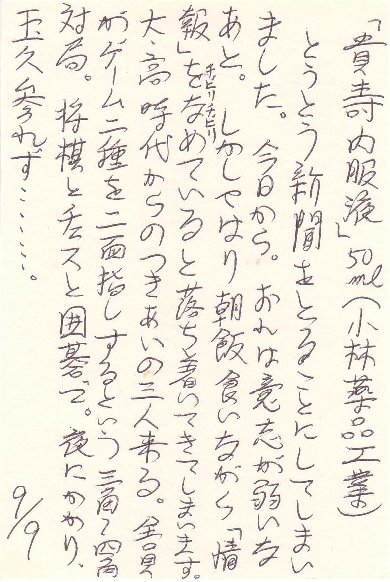 「貴寿内服液」50ml(小林薬品工業)
とうとう新聞をとることにしてしまい
ました。今日から。おれは意志が弱いな
あと。しかしやはり朝飯食いながら「情
報」をなめていると落ち着いてきてしまいます。
チビリチビリ
大・高時代からのつきあいの三人来る。全員
がゲーム二種を二面指しするという三角て四角
対局。将棋とチェスと囲碁で。夜にかかり、
玉久参れず………。
9/9